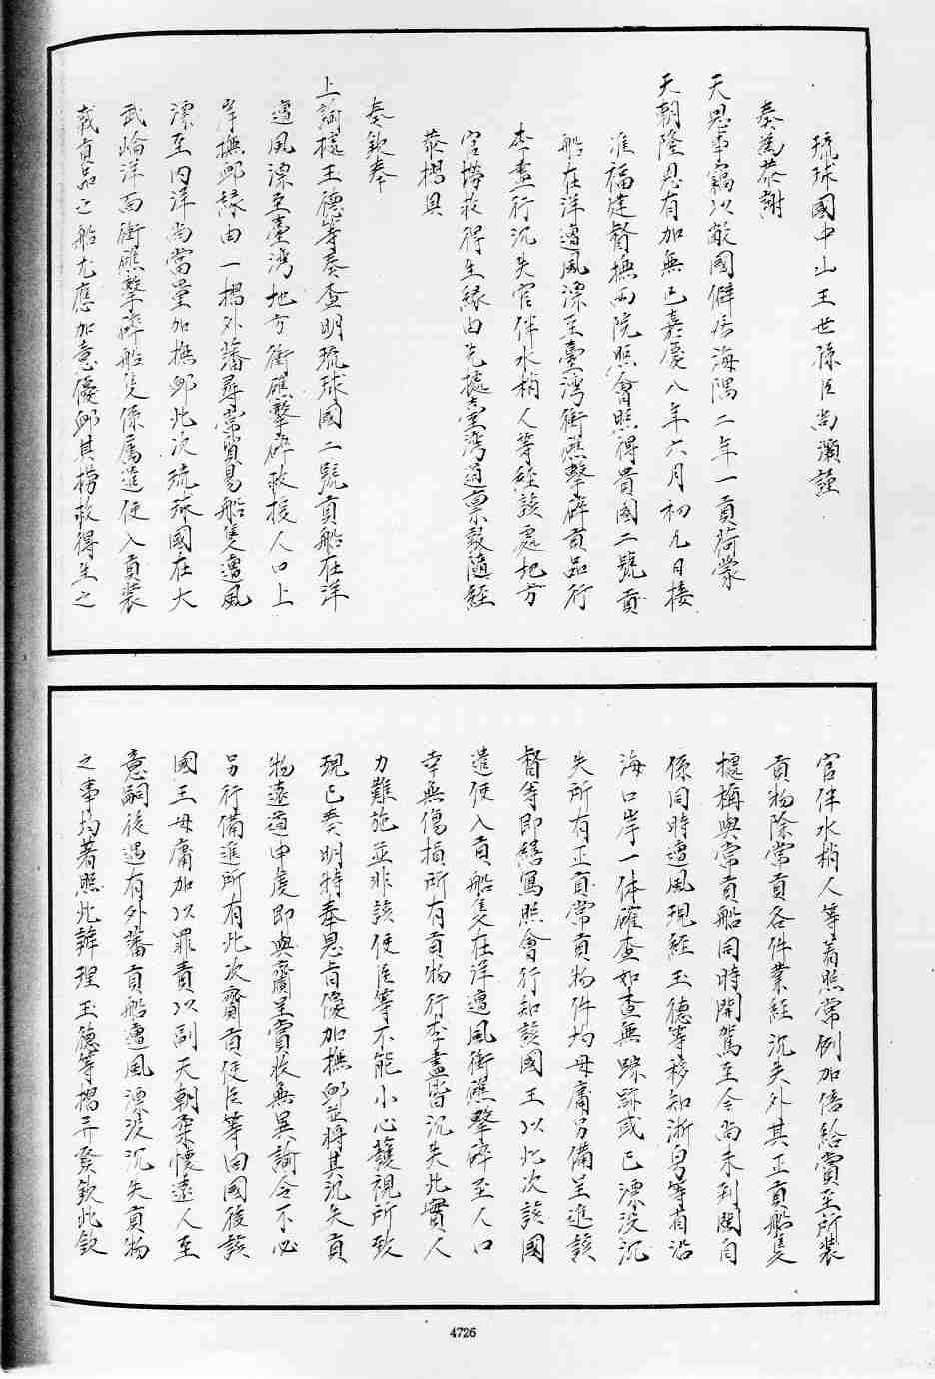 琉球國中山王世孫臣尚灝謹
奏爲恭謝
天恩事竊以敝國僻處海隅二年一貢荷蒙
天朝隆恩有加無已嘉慶八年六月初九日接
准福建督撫兩院照會照得貴國二號貢
船在洋遭風漂至臺灣衝礁擊碎貢品行
李盡行沉失官伴水梢人等經該處地方
官撈救得生緣由先據臺灣道稟報隨經
恭摺具
奏欽奉
上諭據玉德等奏查明琉球國二號貢船在洋
遭風漂至臺灣地方衝礁擊碎救援人口上
岸撫卹緣由一摺外藩尋常貿易船隻遭風
漂至内洋尚當量加撫卹此次琉球國在大
武崙洋面衝礁擊碎船隻係屬進使入貢裝
載貢品之船尤應加意優卹其撈救得生之
官伴水梢人等着照常例加倍給賞至所裝
貢物除常貢各件業經沉失外其正貢船隻
據稱與常貢船同時開駕至今尚未到閩自
係同時遭風現經玉德等移知浙粤等省沿
海口岸一体確查如查無踪跡或已漂没沉
失所有正貢常貢物件均毋庸另備呈進該
督等即繕寫照會行知該國王以此次該國
遣使入貢船隻在洋遭風衝礁擊碎至人口
幸無傷損所有貢物行李盡皆沉失此實人
力難施並非該使臣等不能小心護視所致
現已奏明特奉恩旨優加撫卹並將其沉失貢
物遠道申虔即與齎呈賞收無異諭令不必
另行備進所有此次齎貢使臣等回國後該
國王毋庸加以罪責以副天朝柔懷遠人至
意嗣後遇有外藩貢船遭風漂没沉失貢物
之事均著照此辦理玉德等摺弁發欽此欽
4726